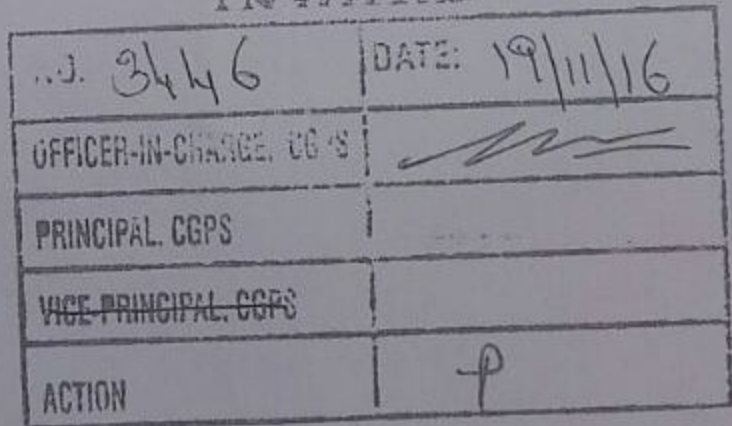 3446 DATE: 19/11/16
OFFICER-IN-CHARGE, CGPS
PRINCIPAL, CGPS
VICE-PRINCIPAL, CGPS
ACTION P